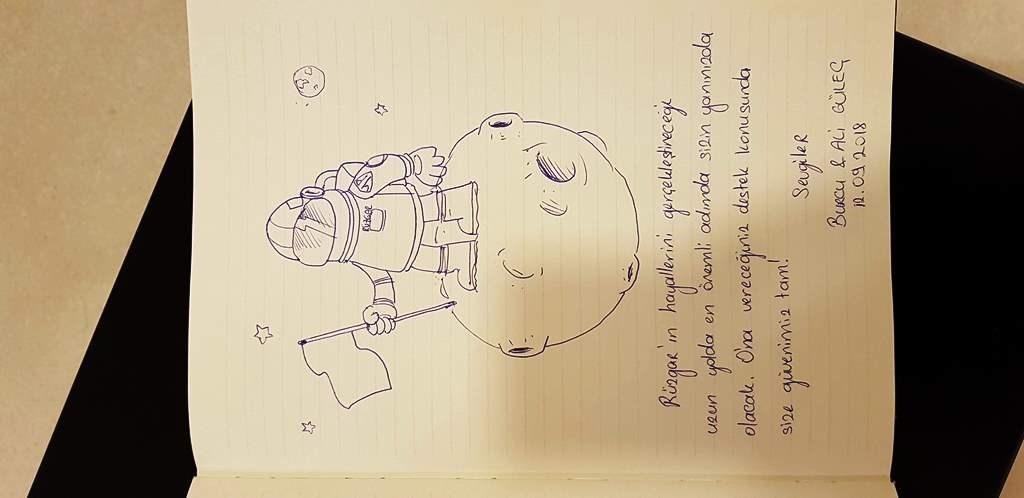 RÜZGAR
Rüzgar'ın hayallerini gerçekleştireceği
uzun yolda en önemli adımda sizin yanınızda
olacak. Ona vereceğiniz destek konusunda
size güvenimiz tam!
Sevgiler
BURCU & ALİ GÜLEÇ
12.09.2018